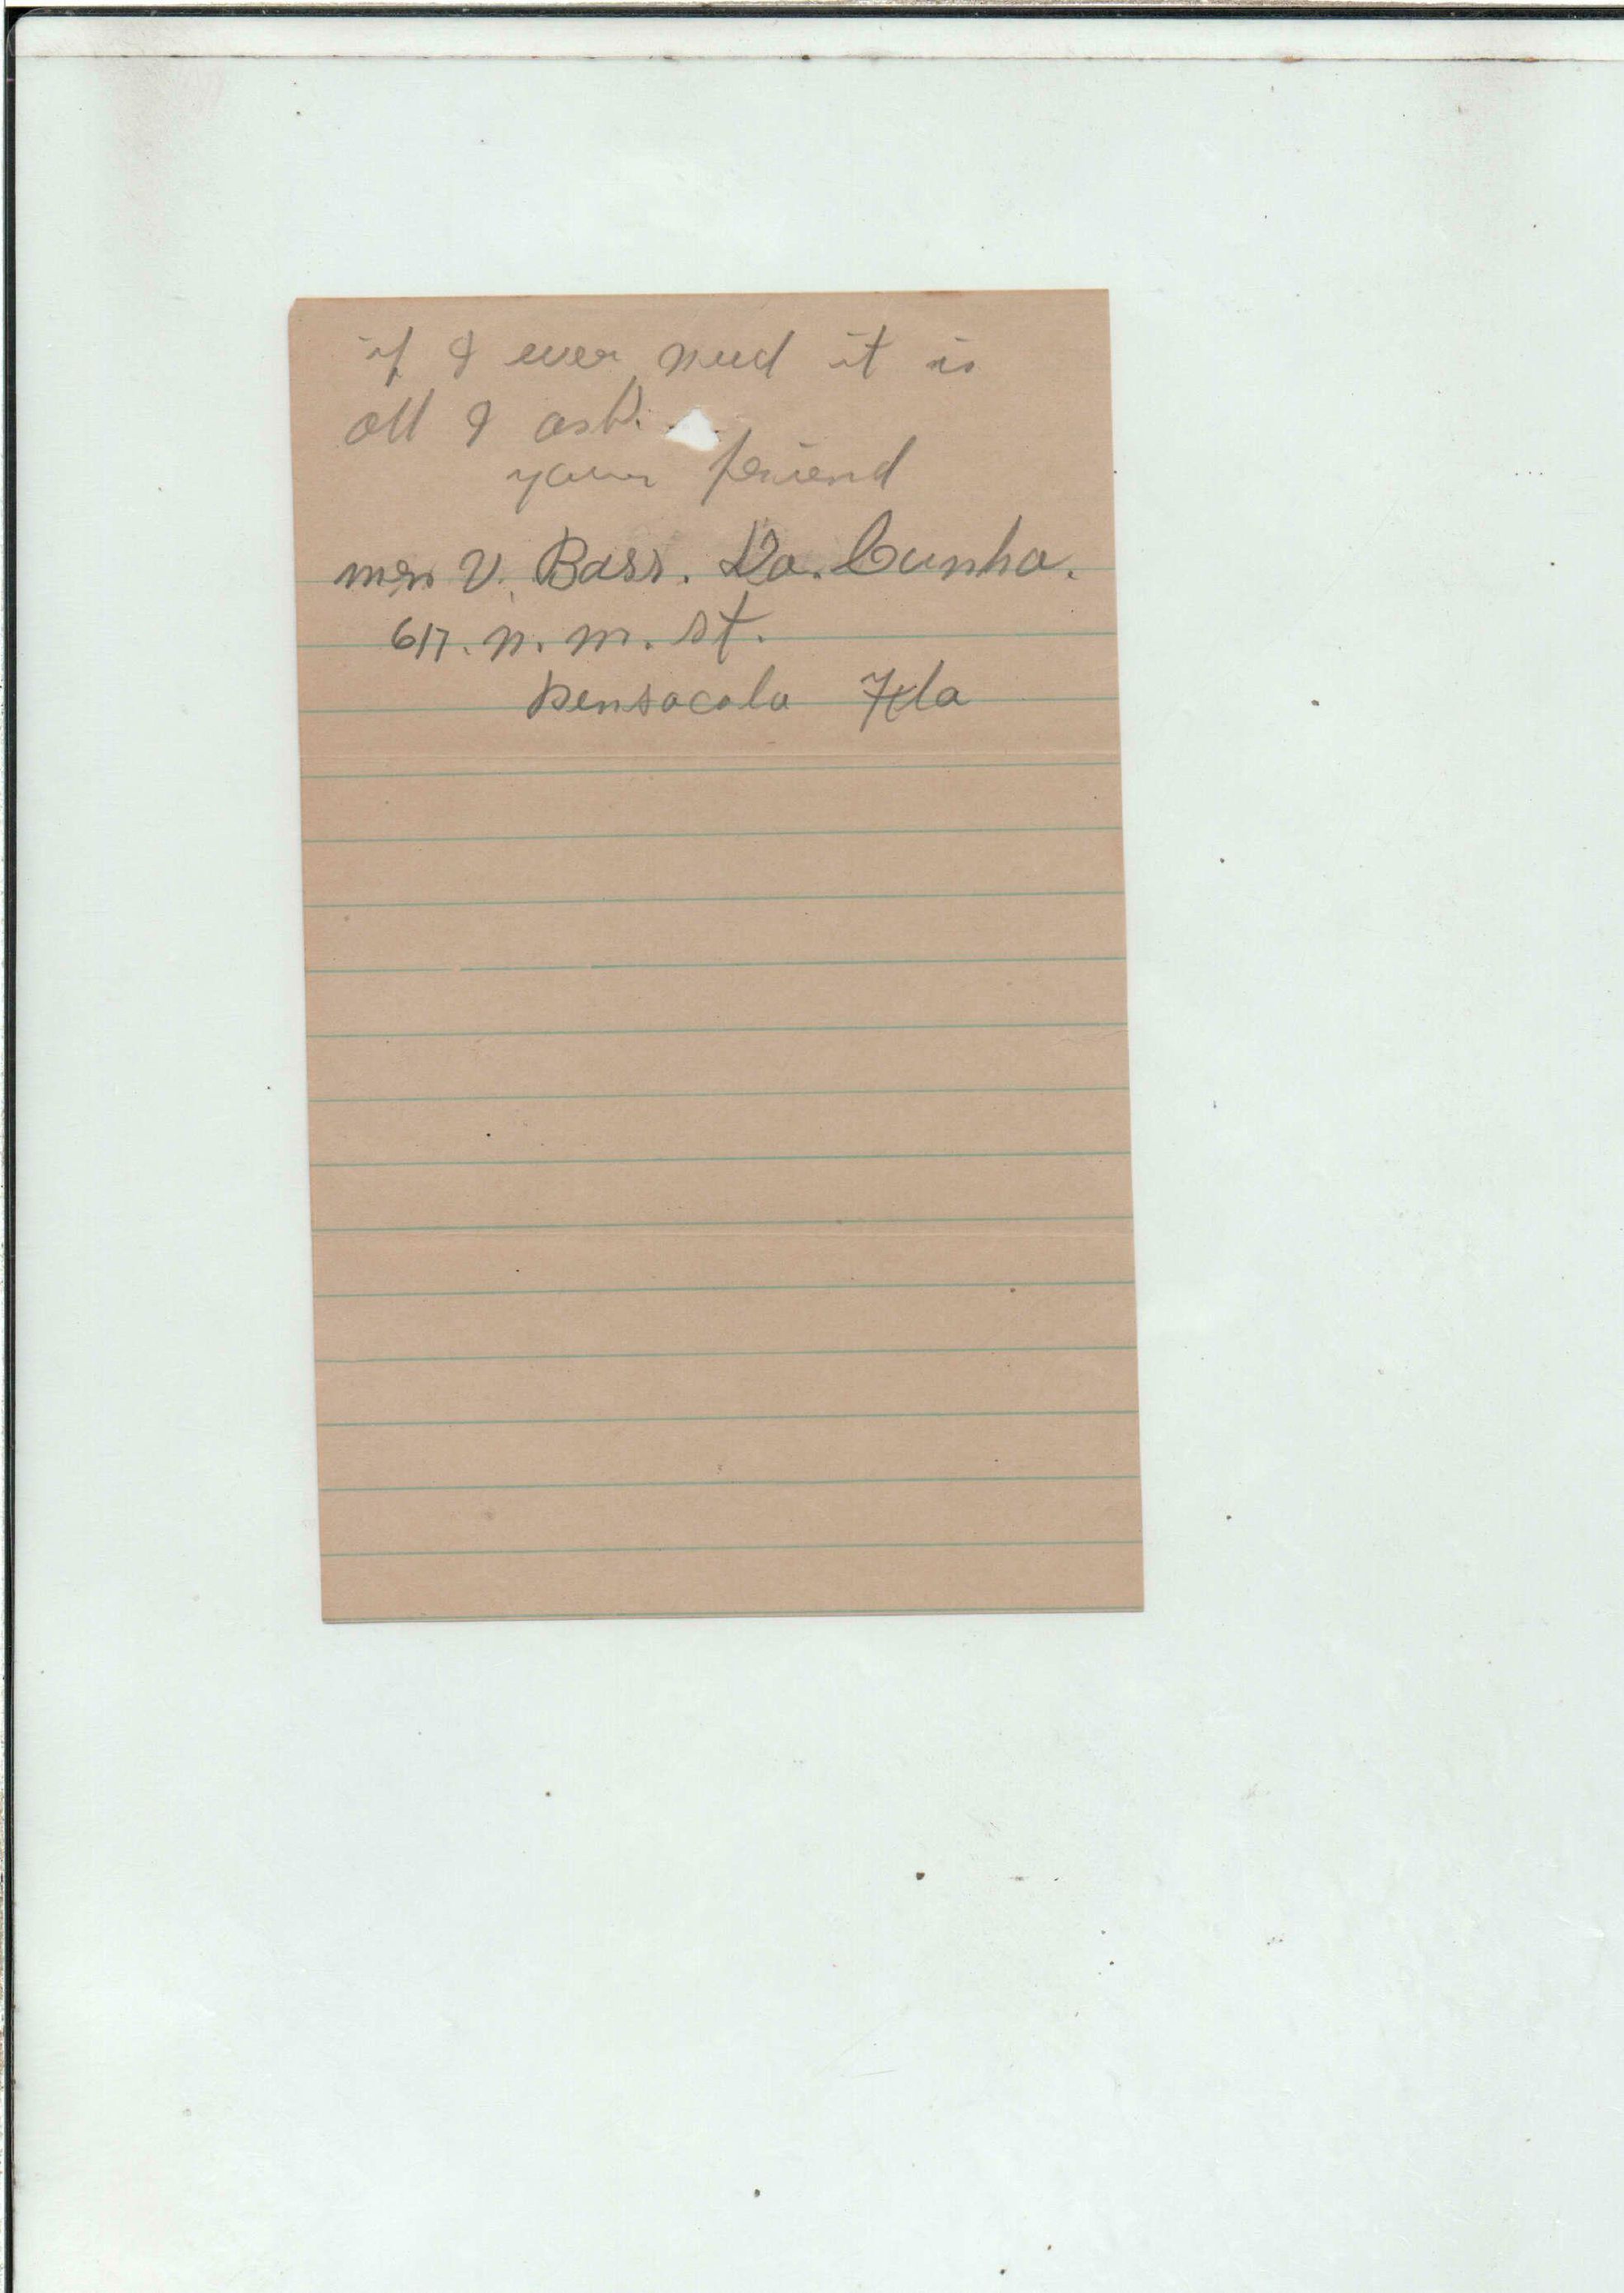 if I ever need it is
all I ask.
your friend
mrs V. Bass. Da. Cunha.
617. n. m. st.
pensacola Fla